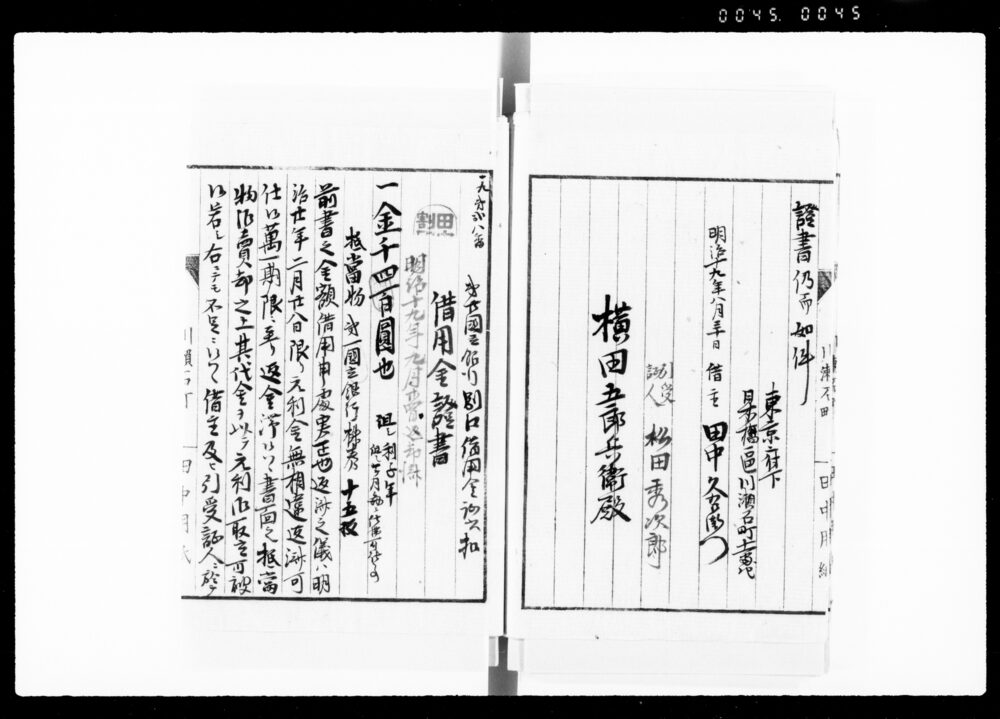 0045. 0045
證書仍而如件
東京府下
日本橋區川瀬石町十一番地
明治十九年八月三十日 借主 田中久右衛門
引受
証人 松田秀次郎
横田五郎兵衛殿
別口借用金
借用金證書
明治十九年九月
割田
一金千四百圓也 但シ利子年
抵當物 第一國立銀行株券 十五枚
前書之金額借用申處実正也返済之儀ハ明
治廿年二月廿八日限リ元利金無相違返済可
仕候萬一期限ニ至リ返金滞候ハヽ書面之抵當
物御賣却之上其代金ヲ以テ元利御取立可被
候若シ右ニテモ不足ニ候ハヽ借主及ヒ引受証人ニ於テ
川瀬石町
田中用紙